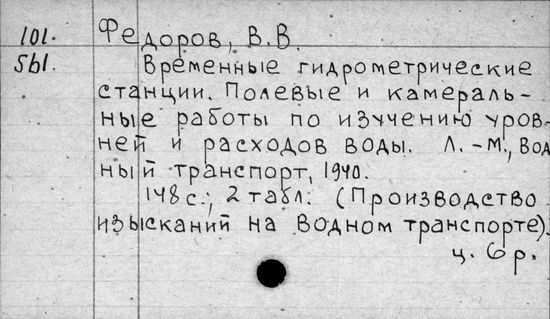 101. Федоров, В.В.
561. Временные гидрометрические
станции. Полевые и камераль-
ные работы по изучению уров-
ней и расходов воды. Л.-М., Вод
ный транспорт, 1940.
148 с.; 2 табл. (Производство
изысканий на водном транспорте).
ц. 6 р.